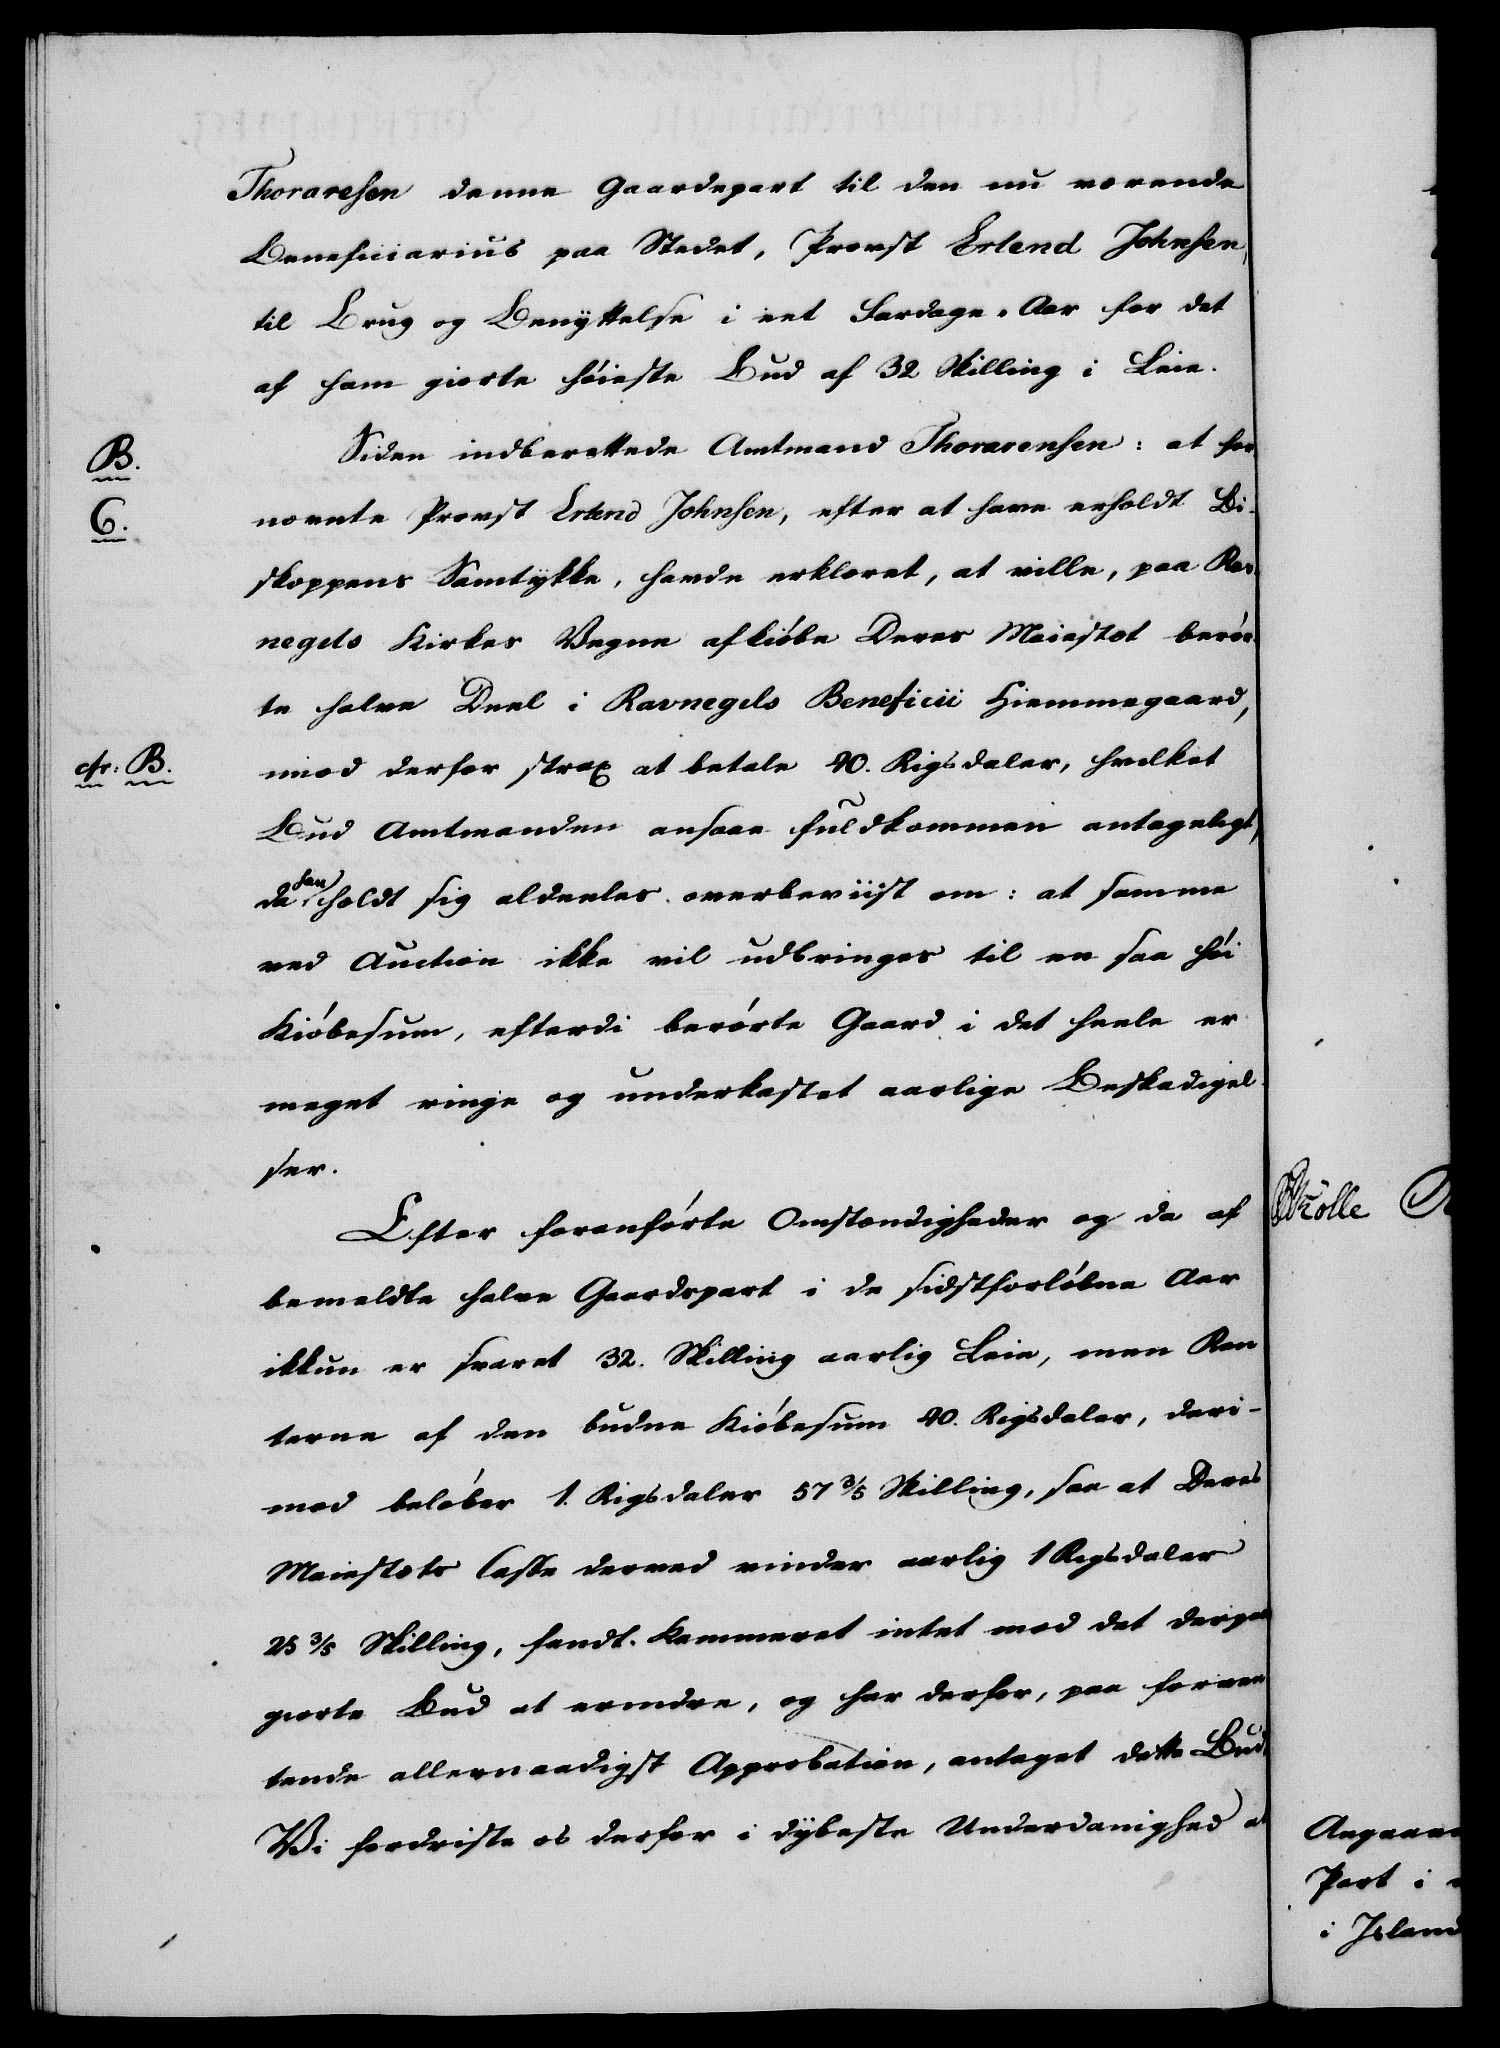 Thoraresen denne Gaardepart til den nu værende
Beneficiarius paa Stedet, Provst Erlend Johnsen,
til Brug og Benyttelse i eet Fardage-Aar for det
af ham giorte høieste Bud af 32 Skilling i Leie.
B.
Siden indberettede Amtmand Thorarensen: at for
C.
nævnte Provst Erlend Johnsen, efter at have erholdt Bi-
skoppens Samtykke, havde erklæret, at ville, paa Rav
negils Kirkes Vegne afkiøbe Deres Maiestæt berør
te halve Deel i Ravnegils Beneficii Hiemmegaard,
cfr: B.
mod derfor strax at betale 40. Rigsdaler, hvilket
Bud Amtmanden ansaae fuldkommen antageligt,
da han holdt sig aldeeles overbeviist om: at samme
ved Auction ikke vil udbringes til en saa høi
Kiøbesum, efterdi berørte Gaard i det heele er
meget ringe og underkastet aarlige Beskadigel-
ser.
Efter foranførte Omstændigheder og da af
bemeldte halve Gaardspart i de sidstforløbne Aar
ikkun er svaret 32. Skilling aarlig Leie, men Ren
terne af den budne Kiøbesum 40. Rigsdaler, deri-
mod beløber 1. Rigsdaler 57 3/5 Skilling, saa at Deres
Maiestæts Casse derved vinder aarlig 1 Rigsdaler
25 3/5 Skilling, fandt Kammeret intet mod det derpaa
giorte Bud at erindre, og har derfor, paa forven
tende allernaadigst Approbation, antaget dette Bud.
Vi fordriste os derfor i dybeste Underdanighed at
Angaaen
Part i
i Island